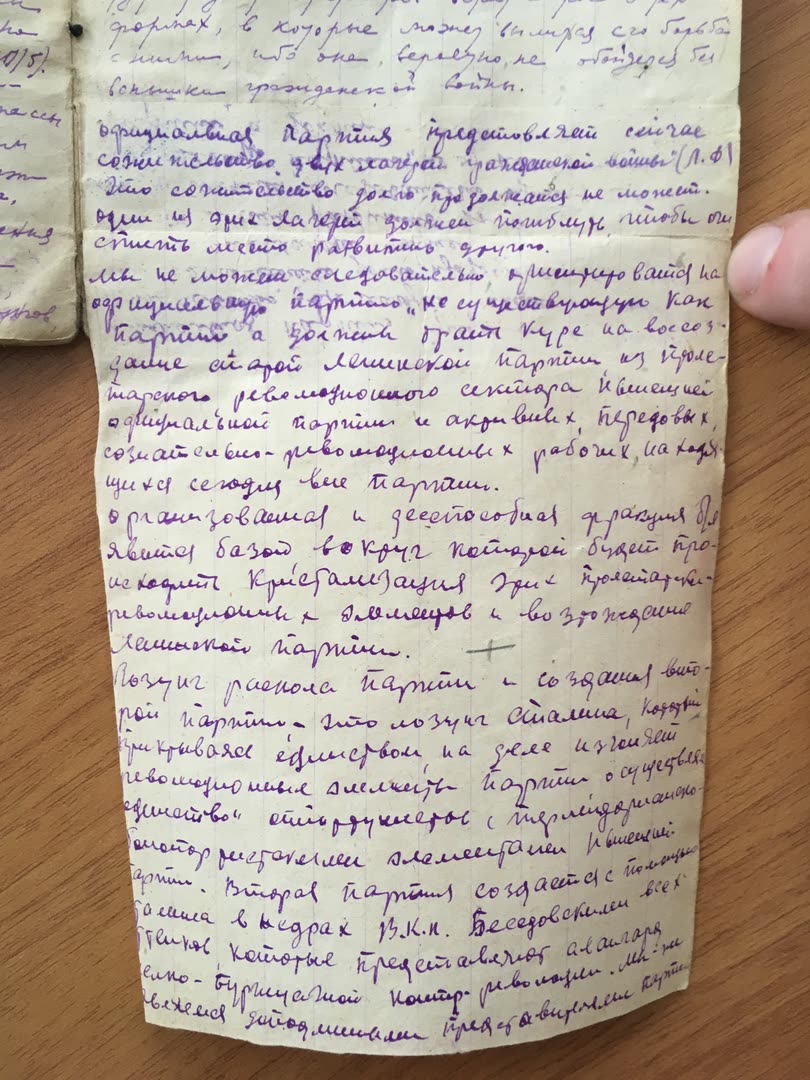 на
1)5).
массы
ым
формах, в которые может вылится его борьба
с ними, ибо она, вероятно, не обойдется без
вспышки гражданской войны.
официальная партия представляет сейчас
сожительство двух лагерей гражданской войны" (Л.Ф)
Это сожительство долго продолжатся не может.
один из этих лагерей должен погибнуть чтобы очи
стить место развитию другого.
мы не можем следовательно, ориентироватся на
официальную партию „не существующую как
партию а должны брать курс на воссоз-
дание старой ленинской партии из проле-
тарского революционного сектора нынешней
официальной партии и активных, передовых,
сознательно-революционных рабочих, находя-
щихся сегодня вне партии.
организованная и дееспособная фракция
явится базой вокруг которой будет про-
исходить кристализация этих пролетарски-
революционных элементов и возрождение
ленинской партии.
Лозунг раскола партии и создания вто-
рой партии - это лозунг Сталина, который
прикрываясь единством, на деле изгоняет
революционные элементы партии осуществляя
единство" оппортунистов с термидорианско-
бонапартистскими элементами нынешней
партии. Вторая партия создается с помощью
талина в недрах В.К.П. Беседовскими всех
оттенков, которые представляют авангард
елко-буржуазной контр-революции. мы-же
являемся подлинными представителями партии